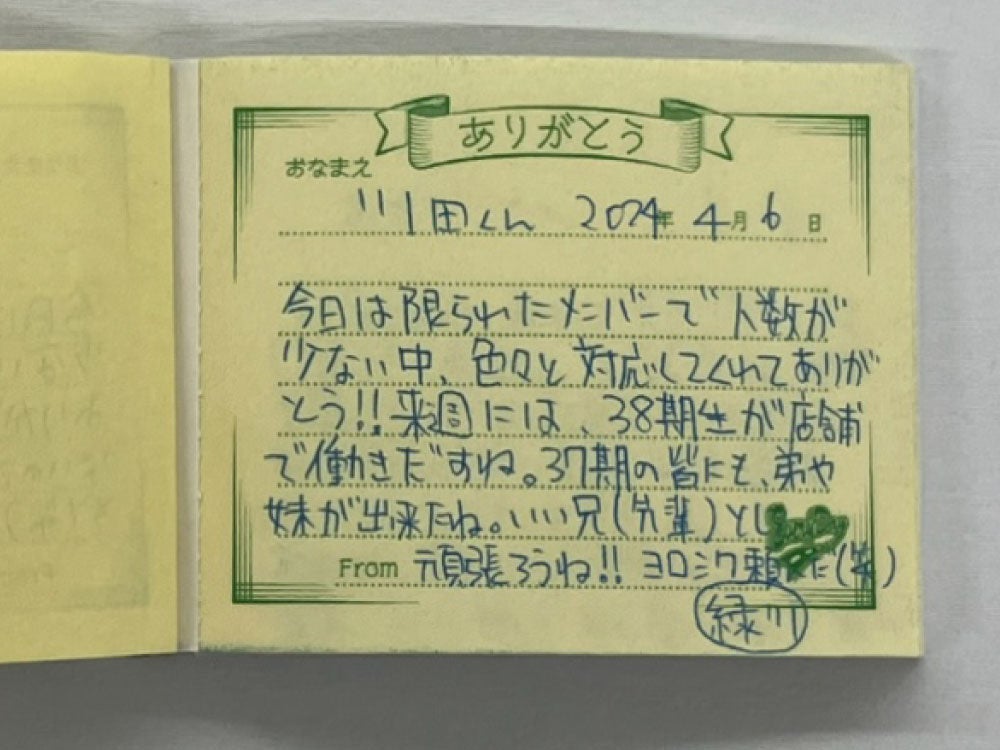 ありがとう
おなまえ
川田くん 2024年 4月 6日
今日は限られたメンバーで人数が
少ない中、色々と対応してくれてありが
とう!!来週には、38期生が店舗
で働きだすね。37期の皆にも、弟や
妹が出来たね。いい兄(先輩)とし
From 頑張ろうね!! ヨロシク頼 だ(笑)
緑川